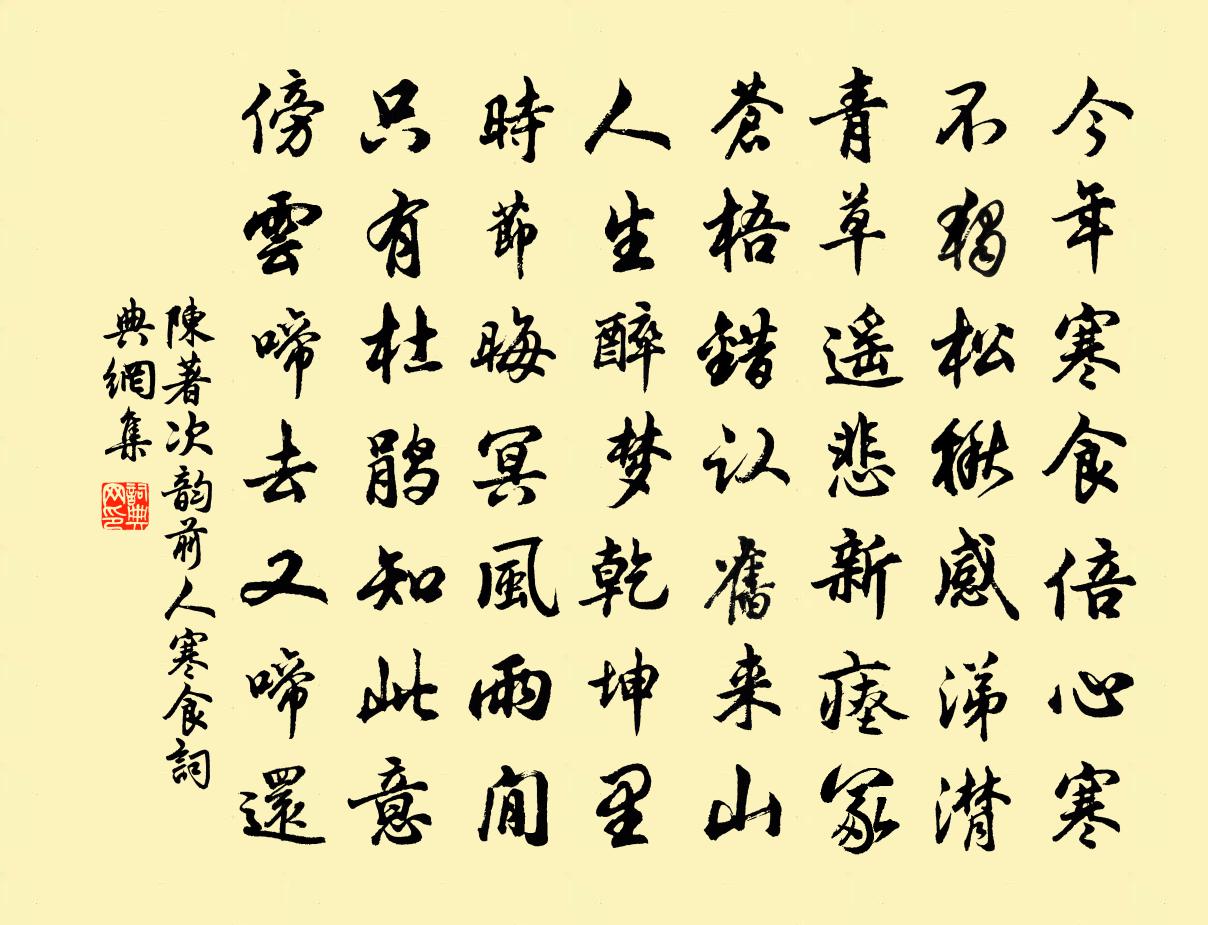 今年寒食倍心寒
不獨松楸感涕潸
青草遥悲新瘞冢
蒼梧錯认舊来山
人生醉梦乾坤里
時節晦冥風雨间
只有杜鹃知此意
傍雲啼去又啼還
陳著次韵前人寒食詞
典網集
詞典网印